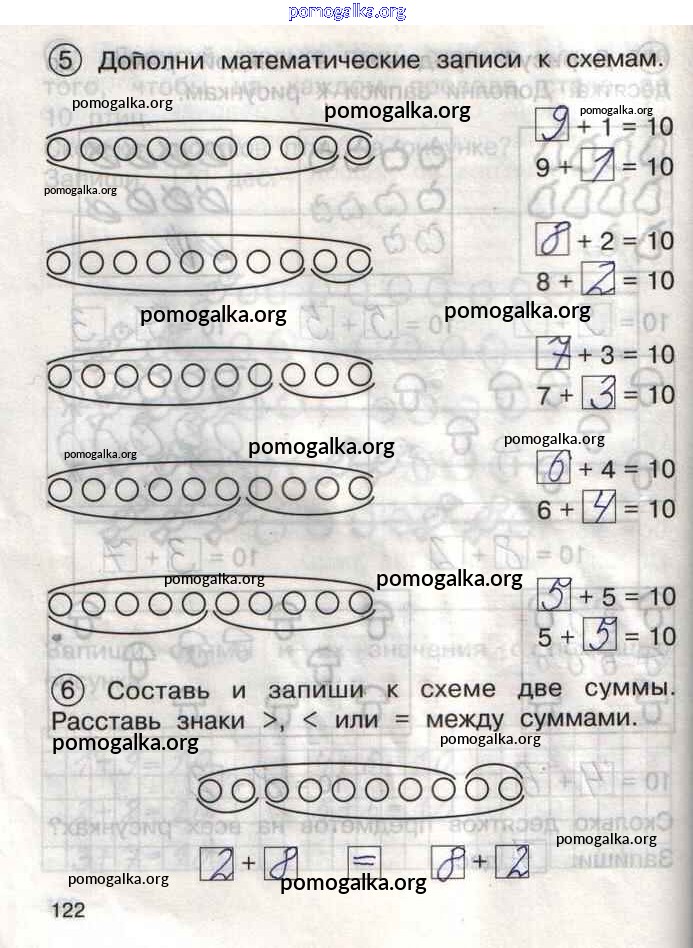 pomogalka.org
5 Дополни математические записи к схемам.
pomogalka.org pomogalka.org pomogalka.org
9 + 1 = 10
9 + 1 = 10
pomogalka.org
8 + 2 = 10
8 + 2 = 10
pomogalka.org pomogalka.org
7 + 3 = 10
7 + 3 = 10
pomogalka.org pomogalka.org pomogalka.org
6 + 4 = 10
6 + 4 = 10
pomogalka.org pomogalka.org
5 + 5 = 10
5 + 5 = 10
6 Составь и запиши к схеме две суммы.
Расставь знаки >, < или = между суммами.
pomogalka.org pomogalka.org
pomogalka.org
2 + 8 = 8 + 2
pomogalka.org pomogalka.org
122